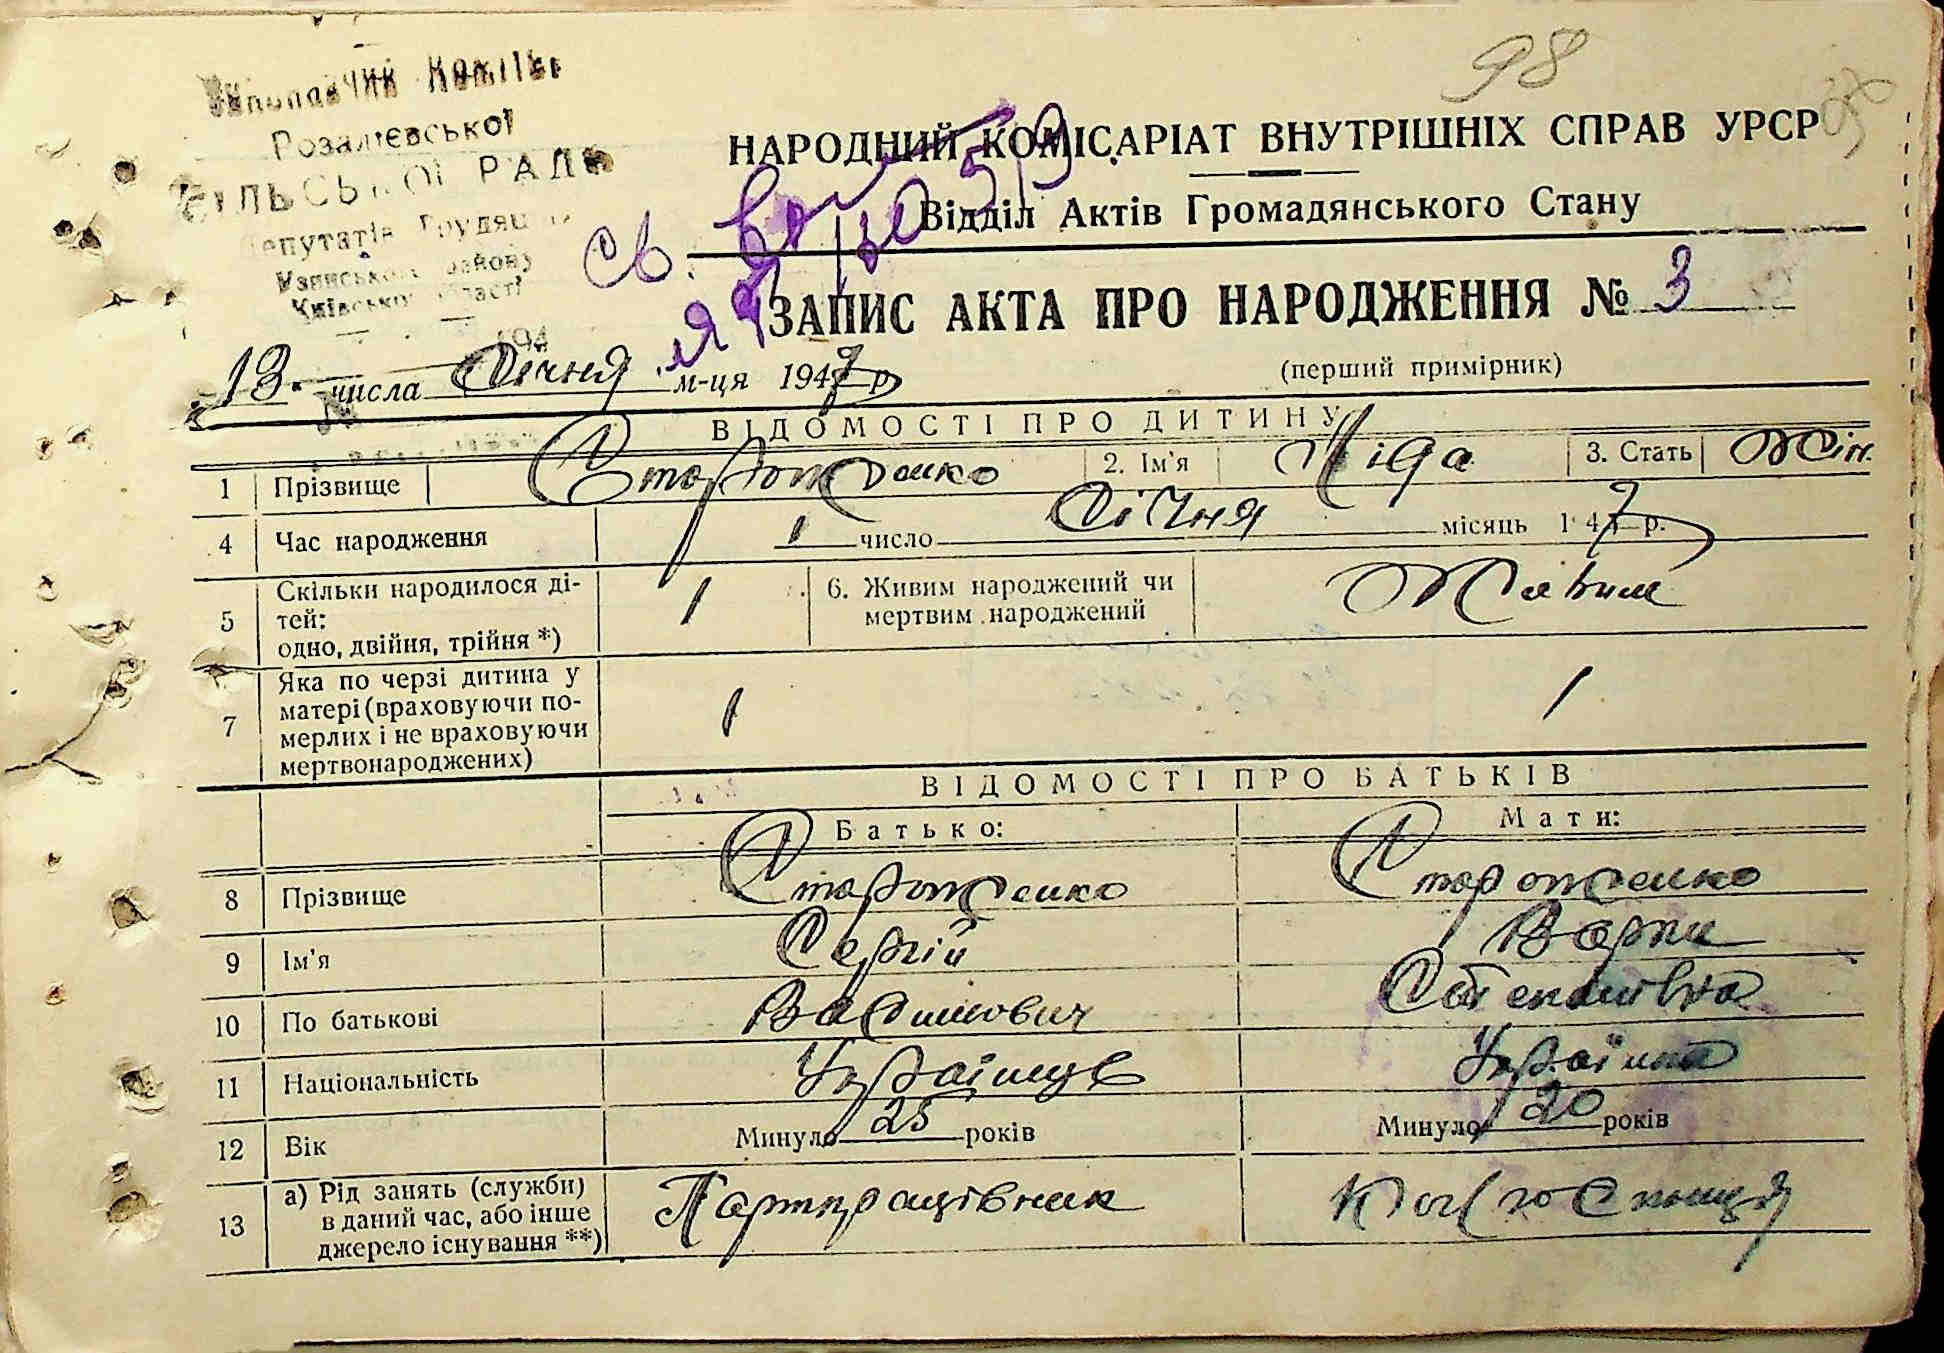 98
Виконавчий Коміт
Розаліевської
СІЛЬСЬКОЇ РАДИ
депутатів Трудящ
району
Київської області
194
НАРОДНИЙ КОМІСАРІАТ ВНУТРІШНІХ СПРАВ УРСР
Відділ Актів Громадянського Стану
ЗАПИС АКТА ПРО НАРОДЖЕННЯ № 3
(перший примірник)
13. числа Січня м-ця 1947 р
ВІДОМОСТІ ПРО ДИТИНУ
1 Прізвище Стороженко 2. Ім'я Ліда 3. Стать Жін.
4 Час народження 1 число Січня місяць 1947 р.
5 Скільки народилося ді-
тей:
одно, двійня, трійня *) 1 6. Живим народжений чи
мертвим народжений Живим
7 Яка по черзі дитина у
матері (враховуючи по-
мерлих і не враховуючи
мертвонароджених) 1 1
ВІДОМОСТІ ПРО БАТЬКІВ
Батько: Мати:
8 Прізвище Стороженко Стороженко
9 Ім'я Сергій
10 По батькові Василович Степанівна
11 Національність Українць Українка
12 Вік Минуло 25 років Минуло 20 років
13 а) Рід занять (служби)
в даний час, або інше
джерело існування **) Партпрацівник